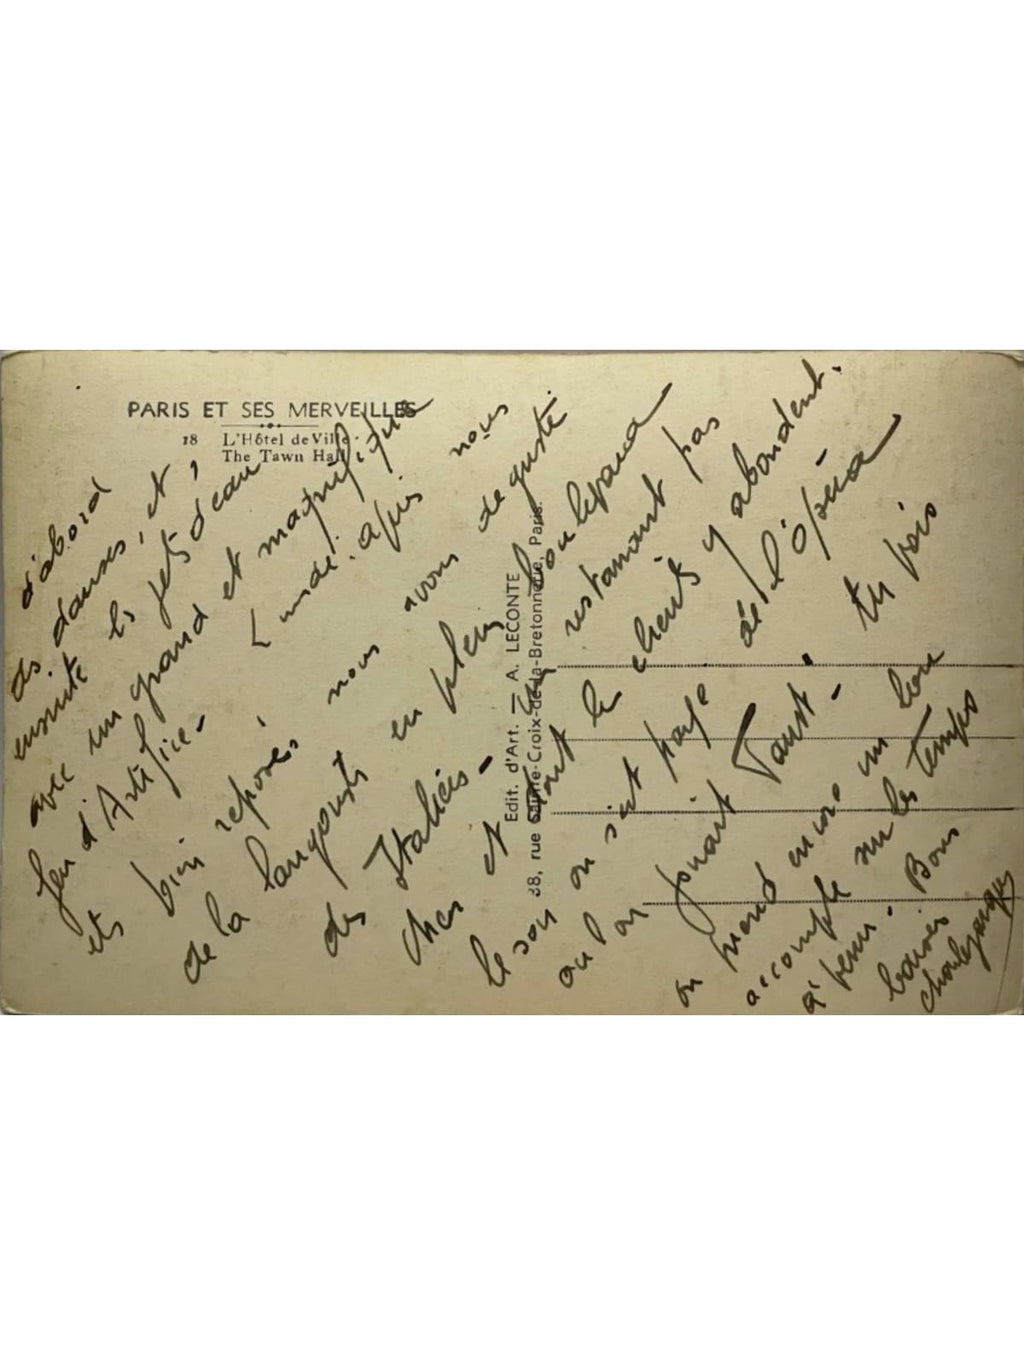 PARIS ET SES MERVEILLES
18 L'Hôtel de Ville
The Tawn Hall
Edit. d'Art. — A. LECONTE
38, rue Sainte-Croix-de-la-Bretonnerie, Paris.
d'abord
des danses, et,
ensuite les jets d'eau
avec un grand et magnifique
feu d'Artifice -
Lundi. après nous
ets bien reposés, nous avons dégusté
de la langouste en plein boulevard
des Italiens - un restaurant pas
cher et dont les clients y abondent.
le soir on s'est payé de l'Opéra
ou l'on jouait Faust. tu vois
on prend encore un bon
accompte sur les temps
à venir. Bons
baisers